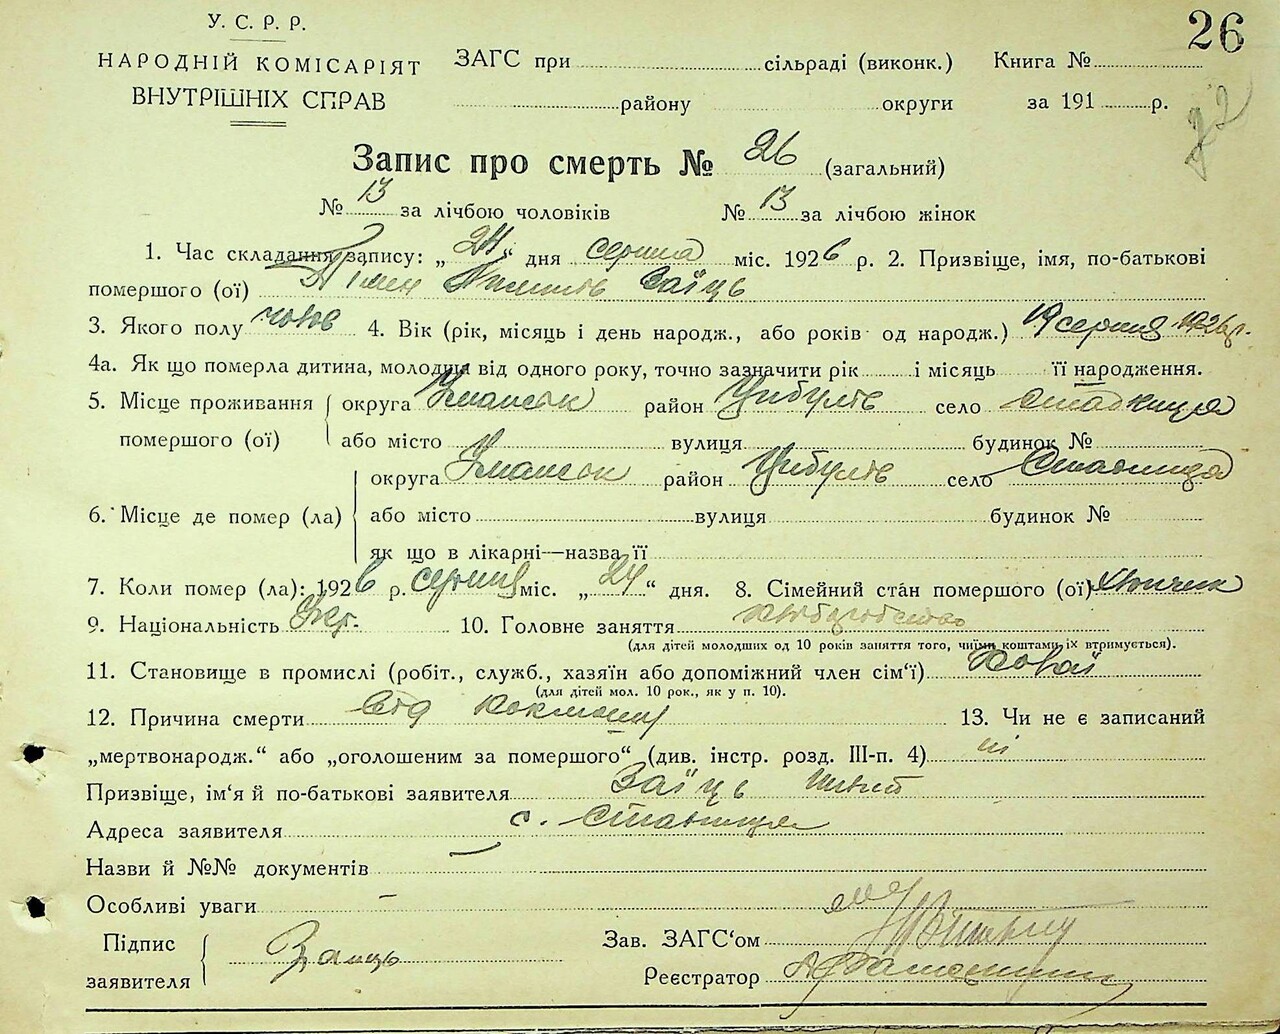 У. С. Р. Р.
26
НАРОДНІЙ КОМІСАРІЯТ
ВНУТРІШНІХ СПРАВ
ЗАГС при сільраді (виконк.) Книга №
району округи за 191 р.
22
Запис про смерть № 26 (загальний)
№ 13 за лічбою чоловіків № 13 за лічбою жінок
1. Час складання запису: „ 24 " дня серпня міс. 1926 р. 2. Призвіще, імя, по-батькові
помершого (ої) Заїць
3. Якого полу чолов 4. Вік (рік, місяць і день народж., або років од народж.) 19 серпня 1926 р.
4а. Як що померла дитина, молодша від одного року, точно зазначити рік і місяць її народження.
5. Місце проживання округа Уманськ район Цибулів село
помершого (ої) або місто вулиця будинок №
округа Уманськ район Цибулів село
6. Місце де помер (ла) або місто вулиця будинок №
як що в лікарні—назва її
7. Коли помер (ла): 1926 р. серпня міс. „ 24 " дня. 8. Сімейний стан помершого (ої) хлопчик
9. Національність Укр. 10. Головне заняття хліборобство
(для дітей молодших од 10 років заняття того, чиїми коштами їх втримується).
11. Становище в промислі (робіт., служб., хазяїн або допоміжний член сім'ї)
(для дітей мол. 10 рок., як у п. 10).
12. Причина смерти Від 13. Чи не є записаний
„мертвонародж." або „оголошеним за помершого" (див. інстр. розд. III-п. 4) ні
Призвіще, ім'я й по-батькові заявителя Заїць
Адреса заявителя с.
Назви й №№ документів —
Особливі уваги –
Підпис
заявителя Заяць
Зав. ЗАГС'ом
Реєстратор